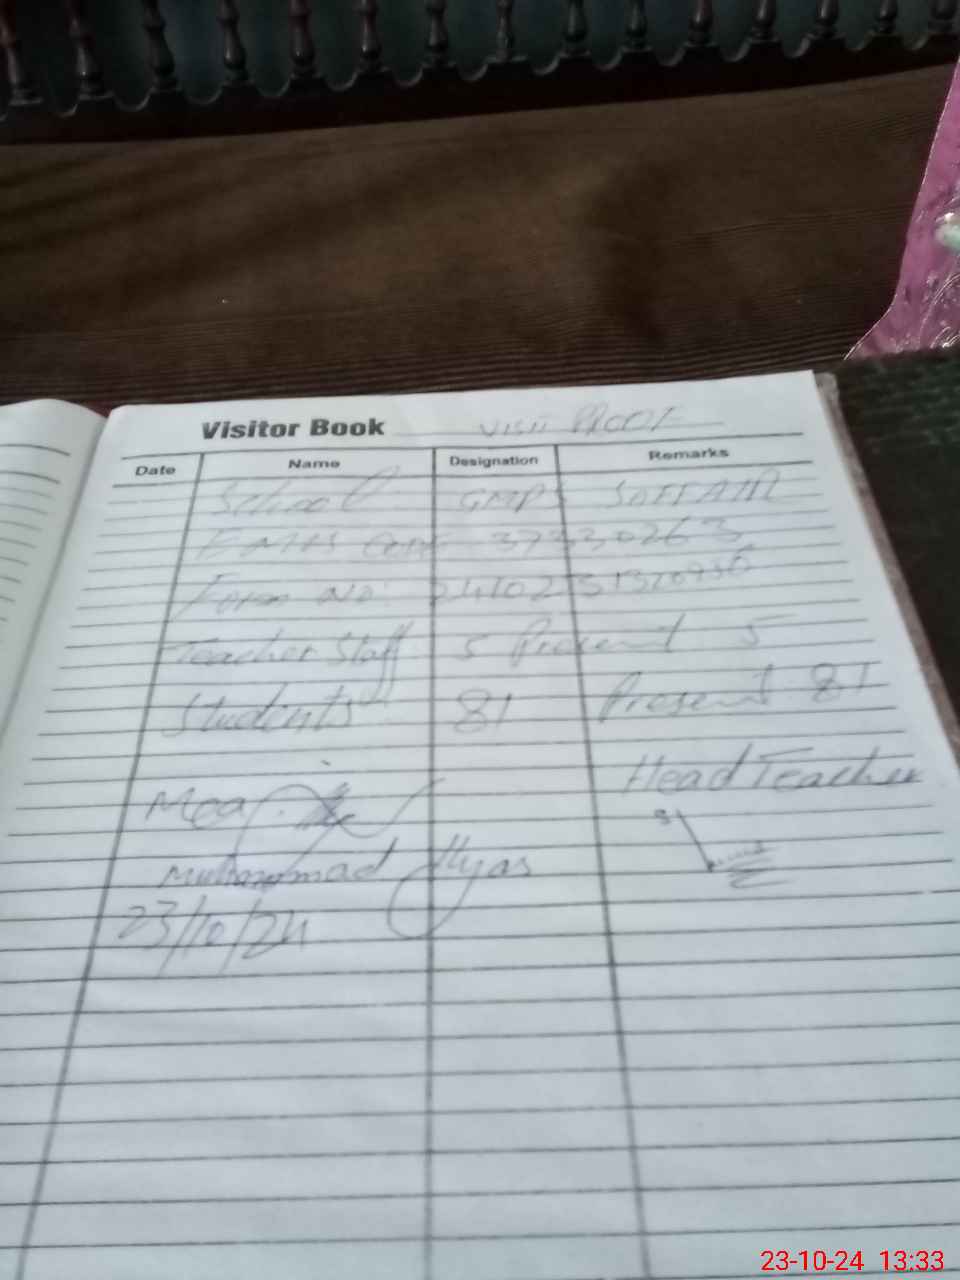 Visitor Book VISIT PROOF
Date Name Designation Remarks
School GMPS
EMIS Code 37330263
Form No:
Teacher Staff 5 Present 5
Students 81 Present 81
Head Teacher
Mea
Muhammad Ilyas
23/10/24
23-10-24 13:33